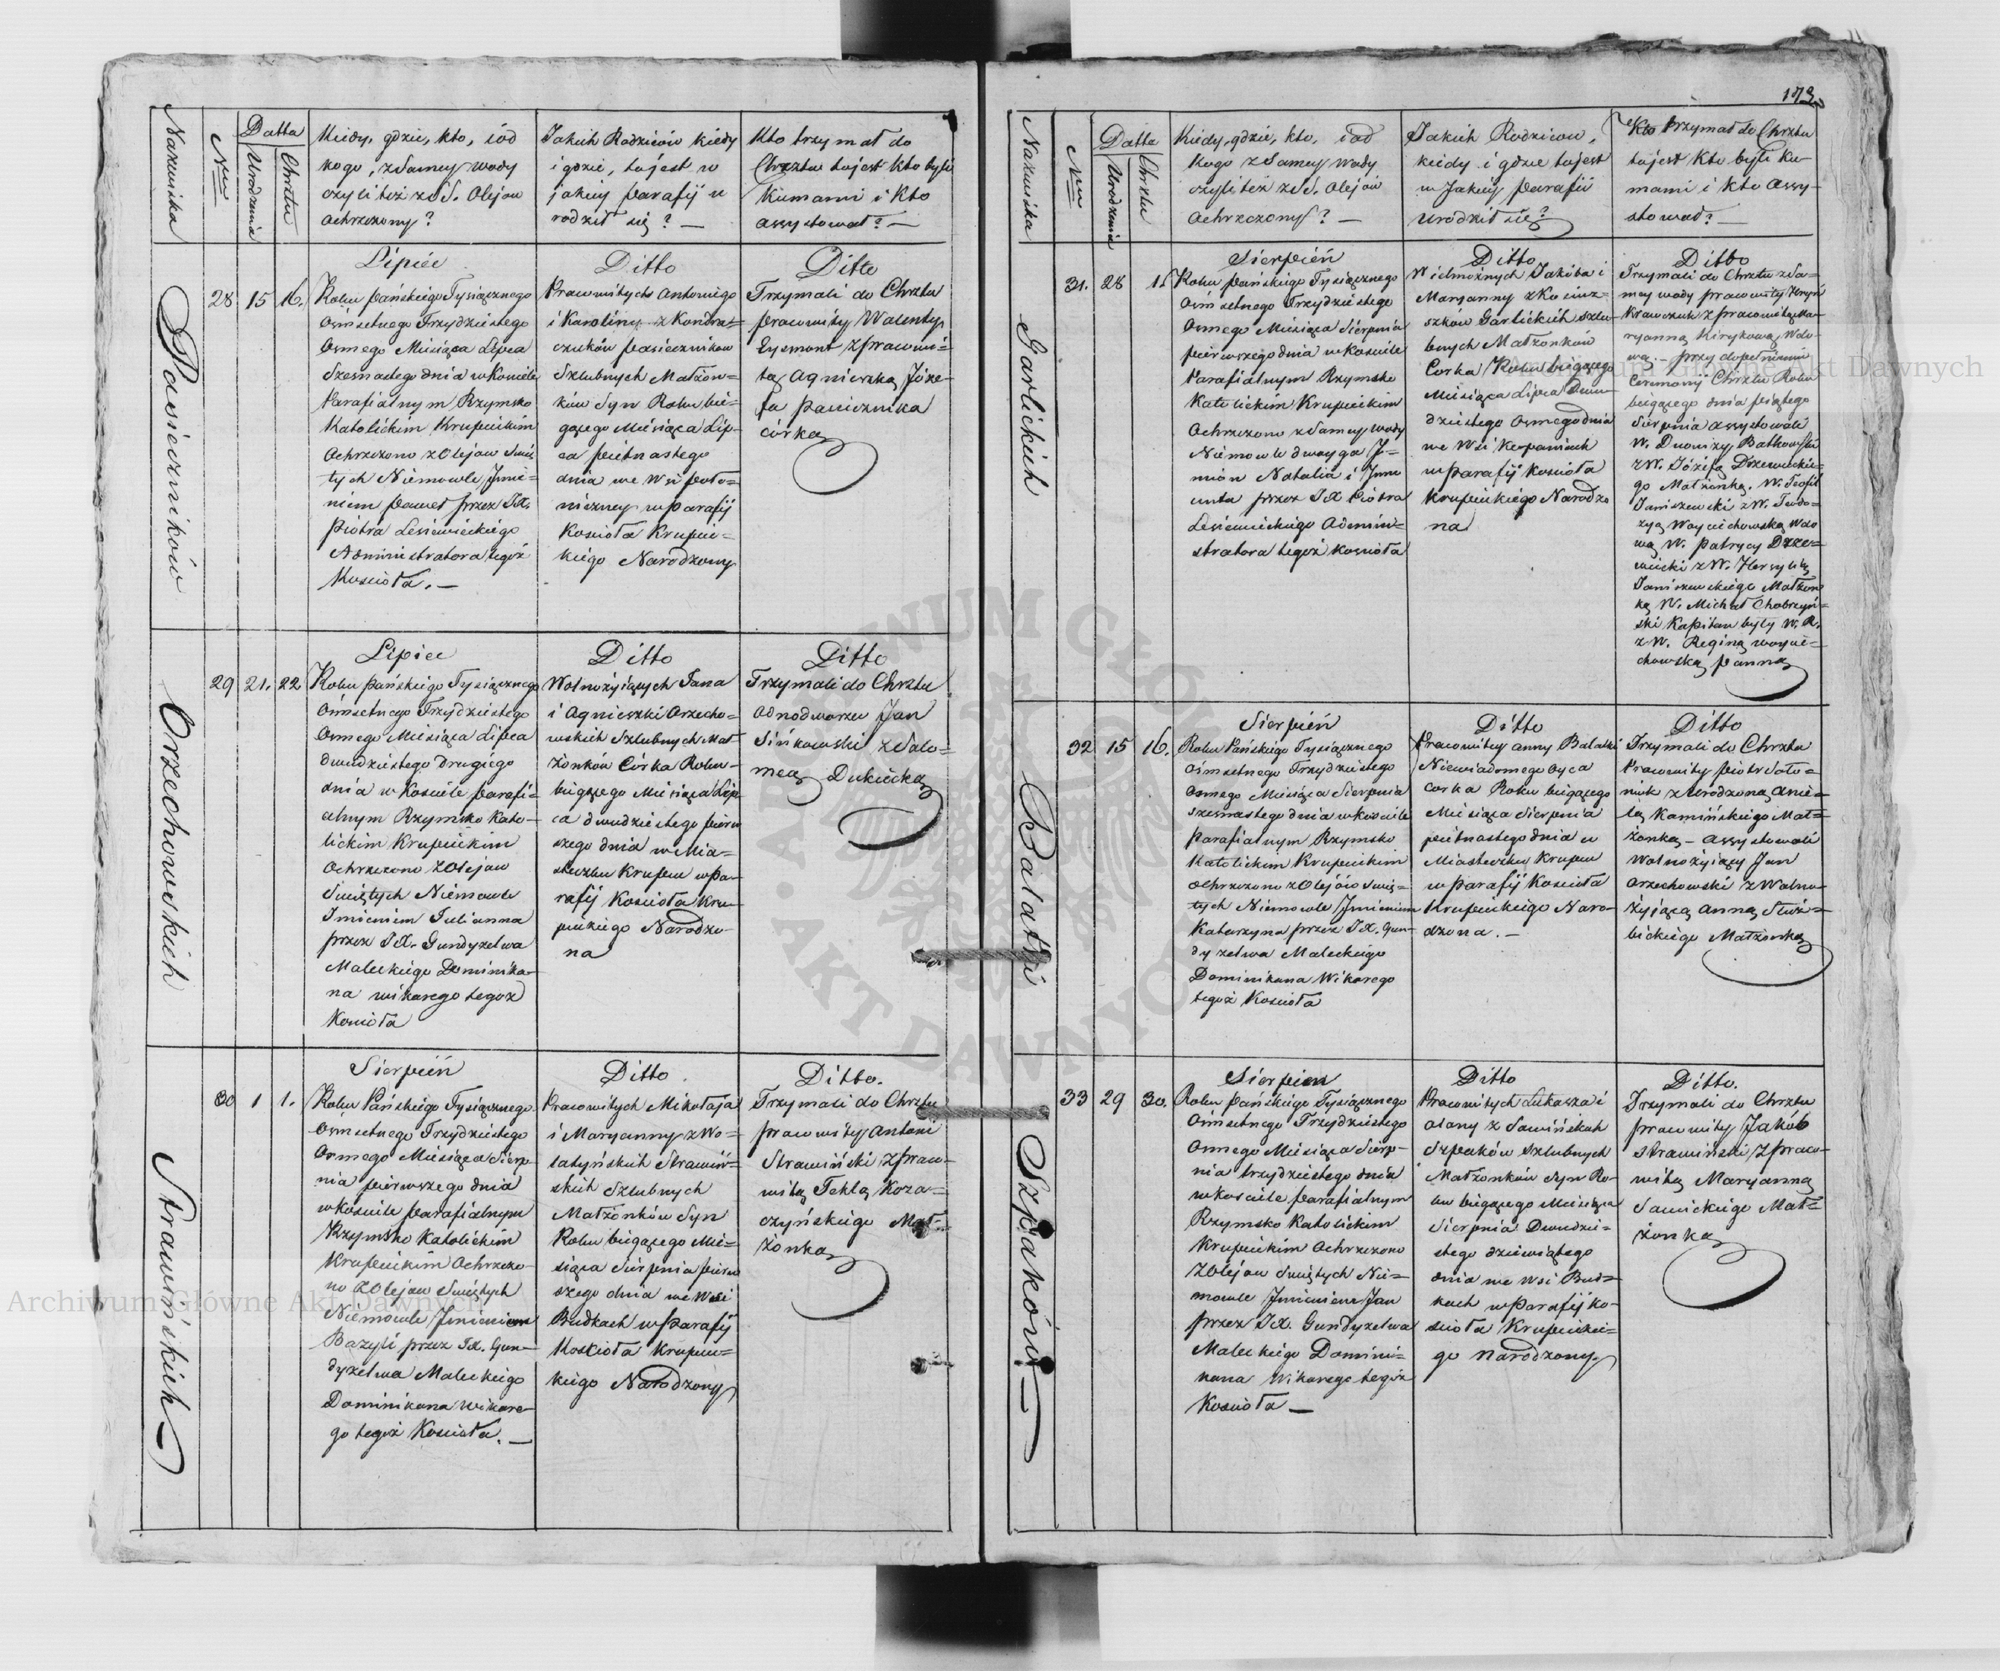 173
Nazwiska
Nro
Datta
Urodzenia
Chrztu
Kiedy, gdzie, kto, i od
kogo, z Samey wody
czyli też z SS. Olejow
ochrzczony?
Jakich Rodziców kiedy
i gdzie, to jest w
jakiey Parafij u
rodził się? —
Kto trzymał do
Chrztu to jest kto byli
Kumami i Kto
assystował? —
Pasieczników
28 15 16.
Lipiec
Roku Pańskiego Tysiącznego
Ośmsetnego Trzydziestego
Osmego Miesiąca Lipca
Szesnastego dnia w Kościele
Parafialnym Rzymsko
Katolickim Krupeckim
Ochrzczono z Olejów Świę-
tych Niemowle Jmie-
niem Paweł przez JX.
Piotra Lesiewickiego
Administratora tegoż
Kościoła. —
Ditto
Pracowitych Antoniego
i Karoliny z Kondra-
czuków Pasieczników
Szlubnych Małżon-
ków Syn Roku bie-
gącego Miesiąca Lip-
ca piętnastego
dnia we Wsi Poło-
niczney w Parafij
Kościoła Krupec-
kiego Narodzony
Ditto
Trzymali do Chrztu
Pracowity Walenty
Eysmont z Pracowi-
tą Agnieszką Józe-
fa Pasicznika
córką
Orzechowskich
29 21. 22.
Lipiec
Roku Pańskiego Tysiącznego
Ośmsetnego Trzydziestego
Osmego Miesiąca Lipca
dwudziestego Drugiego
dnia w Kościele Parafi-
alnym Rzymsko Kato-
lickim Krupeckim
Ochrzczono z Olejów
Świętych Niemowle
Jmieniem Julianna
przez JX. Gundyzelwa
Maleckiego Dominika-
na wikarego tegoż
Kościoła
Ditto
Wolnożyiących Jana
i Agnieszki Orzecho-
wskich Szlubnych Mał
żonkow Córka Roku
biegącego Miesiąca Lip-
ca dwudziestego pierw
szego dnia w Mia-
steczku Krupcu w Pa-
rafij Kościoła Kru-
peckiego Narodzo-
na
Ditto
Trzymali do Chrztu
Odnodworzec Jan
Sińkowski z Salo-
meą Dukicką
Strawińskich
30 1 1.
Sierpień
Roku Pańskiego Tysiącznego
Ośmsetnego Trzydziestego
Osmego Miesiąca Sierp-
nia pierwszego dnia
w Kościele Parafialnym
Rzymsko Katolickim
Krupeckim Ochrzczo-
no z Olejow Świętych
Niemowle Jmieniem
Bazyli przez JX. Gun-
dyzelwa Maleckiego
Dominikana wikare-
go tegoż Kościoła. —
Ditto
Pracowitych Mikołaja
i Maryanny z Wo-
łatyńskich Strawiń-
skich Szlubnych
Małżonków Syn
Roku biegącego Mie-
siąca Sierpnia pierw
szego dnia we Wsi
Budkach w Parafij
Kościoła Krupec-
kiego Narodzony
Ditto.
Trzymali do Chrztu
pracowity Antoni
Strawiński z Praco-
witą Teklą Koza-
czyńskiego Mał-
żonką
Nazwiska
Nro
Datta
Urodzenia
Chrztu
Kiedy, gdzie, kto, i od
kogo z Samey wody
czyli też z SS. Olejów
ochrzczony? —
Jakich Rodzicow,
kiedy i gdzie to jest
w Jakiey Parafii
urodził się?
Kto trzymał do Chrztu
to jest Kto byli Ku-
mami i kto Assy-
stował? —
Garlickich
31. 28 1.
Sierpień
Roku Pańskiego Tysiącznego
Ośmsetnego Trzydziestego
Osmego Miesiąca Sierpnia
pierwszego dnia w Kościele
Parafialnym Rzymsko
Katolickim Krupeckim
Ochrzczono z Samey wody
Niemowle dwoyga J-
mion Natalia i Jnno-
centa przez JX Piotra
Lesiewickiego Admini-
stratora tegoż Kościoła
Ditto
Wielmożnych Jakóba i
Maryanny z Kościusz-
szków Garlickich Szlu-
bnych Małżonków
Corka Roku biegącego
Miesiąca Lipca Dwu-
dziestego Osmego dnia
we Wsi Kopaniach
w Parafij Kościoła
Krupeckiego Narodzo
na
Ditto
Trzymali do Chrztu z Sa-
mey wody pracowity Hryń
Krawczuk z pracowitą Ma-
ryanną Kirykową Wdo-
wą — przy dopełnieniu
Ceremonij Chrztu Roku
biegącego dnia piątego
Sierpnia assystowali
W. Dionizy Bałkowski
z W. Józefą Drzewieckie-
go Małżonką. W. Teofil
Janiszewski z W. Teodo-
zyą Woyciechowską Wdo
wą W. Patrycy Drze-
wiecki z W. Hersylią
Janiszewskiego Małżon
ką W. Michał Chobrzyń-
ski Kapitan były W. R.
z W. Reginą Woycie-
chowską Panną
Bałatki
32 15 16.
Sierpień
Roku Pańskiego Tysiącznego
Ośmsetnego Trzydziestego
Osmego Miesiąca Sierpnia
szesnastego dnia w Kościele
Parafialnym Rzymsko
Katolickim Krupeckim
Ochrzczono z Olejów Świę-
tych Niemowle Jmieniem
Katarzyna przez JX. Gun-
dyzelwa Maleckiego
Dominikana Wikarego
tegoż Kościoła
Ditto
Pracowitey Anny Bałatki
Niewiadomego Oyca
Corka Roku biegącego
Miesiąca Sierpnia
piętnastego dnia w
Miasteczku Krupcu
w Parafij Kościoła
Krupeckiego Naro-
dzona. —
Ditto
Trzymali do Chrztu
Pracowity Piotr Soło-
niuk z Urodzoną Anie-
lą Kamińskiego Mał-
żonką — Assystowali
Wolnożyiący Jan
Orzechowski z Wolno-
żyiącą Anną Służ-
bickiego Małżonką
Szpaków —
33 29 30.
Sierpień
Roku Pańskiego Tysiącznego
Ośmsetnego Trzydziestego
Osmego Miesiąca Sierp-
nia trzydziestego dnia
w Kościele Parafialnym
Rzymsko Katolickim
Krupeckim Ochrzczono
z Olejow Świętych Nie-
mowle Jmieniem Jan
przez JX. Gundyzelwa
Maleckiego Domini-
kana Wikarego tegoż
Kościoła —
Ditto
Pracowitych Łukasza i
Ołany z Sawińskich
Szpaków Szlubnych
Małżonków Syn Ro-
ku biegącego Miesiąca
Sierpnia Dwudzie-
stego dziewiątego
dnia we Wsi Bud-
kach w Parafij Ko-
ścioła Krupeckie-
go narodzony
Ditto.
Trzymali do Chrztu
pracowity Jakób
Strawiński z Praco-
witą Maryanną
Sawickiego Mał-
żonką
Archiwum Główne Akt Dawnych